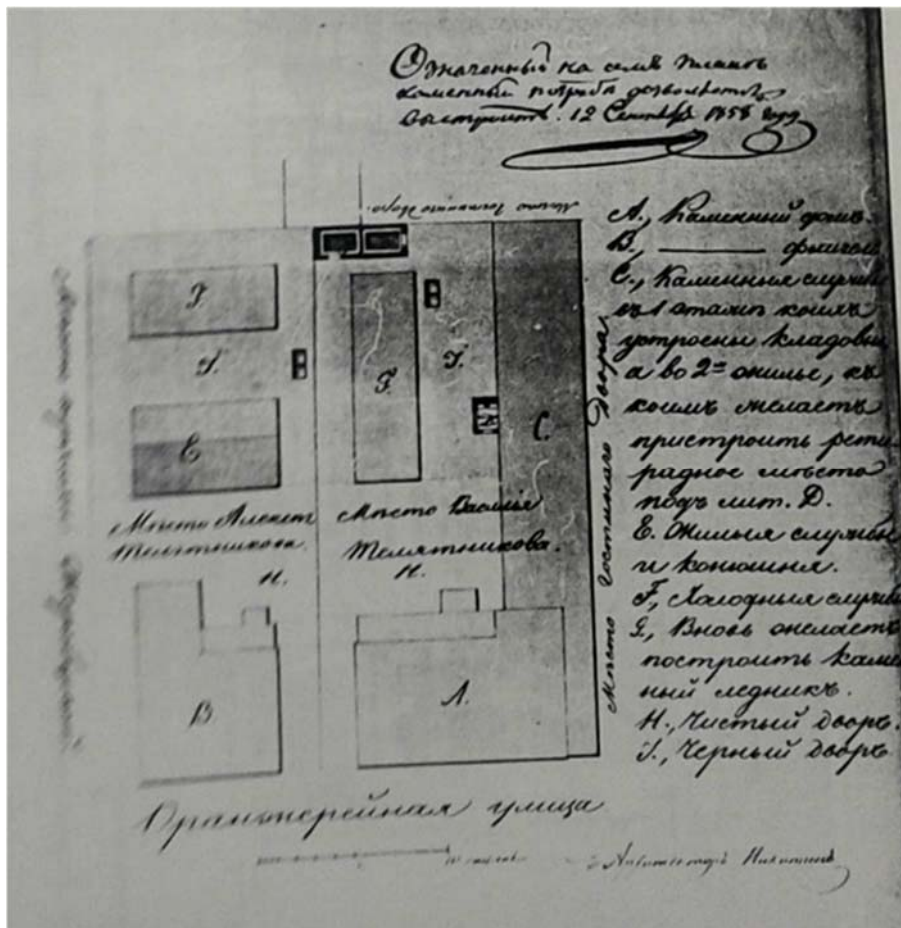 Означенный на семъ планѣ
каменный погребъ дозволяется
выстроить. 12 Сентября 1858 года
Мѣсто Гостиннаго Двора.
A., Каменный домъ.
B., ——— флигель
C., Каменныя службы
въ 1 этажѣ коихъ
устроены кладовыя
а во 2мъ жилье, къ
коимъ желаетъ
пристроить рети-
радное мѣсто
подъ лит. D.
E. Жилыя службы
и конюшня.
F., Холодныя службы
G., Вновь желаетъ
построить камен
ный ледникъ.
H., Чистый дворъ.
J., Черный дворъ
F
J.
F.
J.
C.
E
Мѣсто Гостиннаго Двора
Мѣсто Алексѣя
Телятникова.
Мѣсто Василья
Телятникова.
H.
H.
B
A.
Оранжерейная улица
Архитекторъ Никитинъ